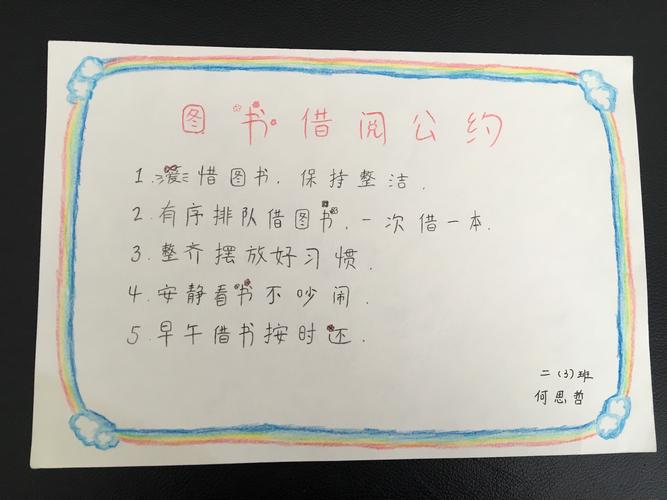 图书借阅公约
1.爱惜图书,保持整洁.
2.有序排队借图书,一次借一本.
3.整齐摆放好习惯.
4.安静看书不吵闹.
5.早午借书按时还.
二(3)班
何思哲